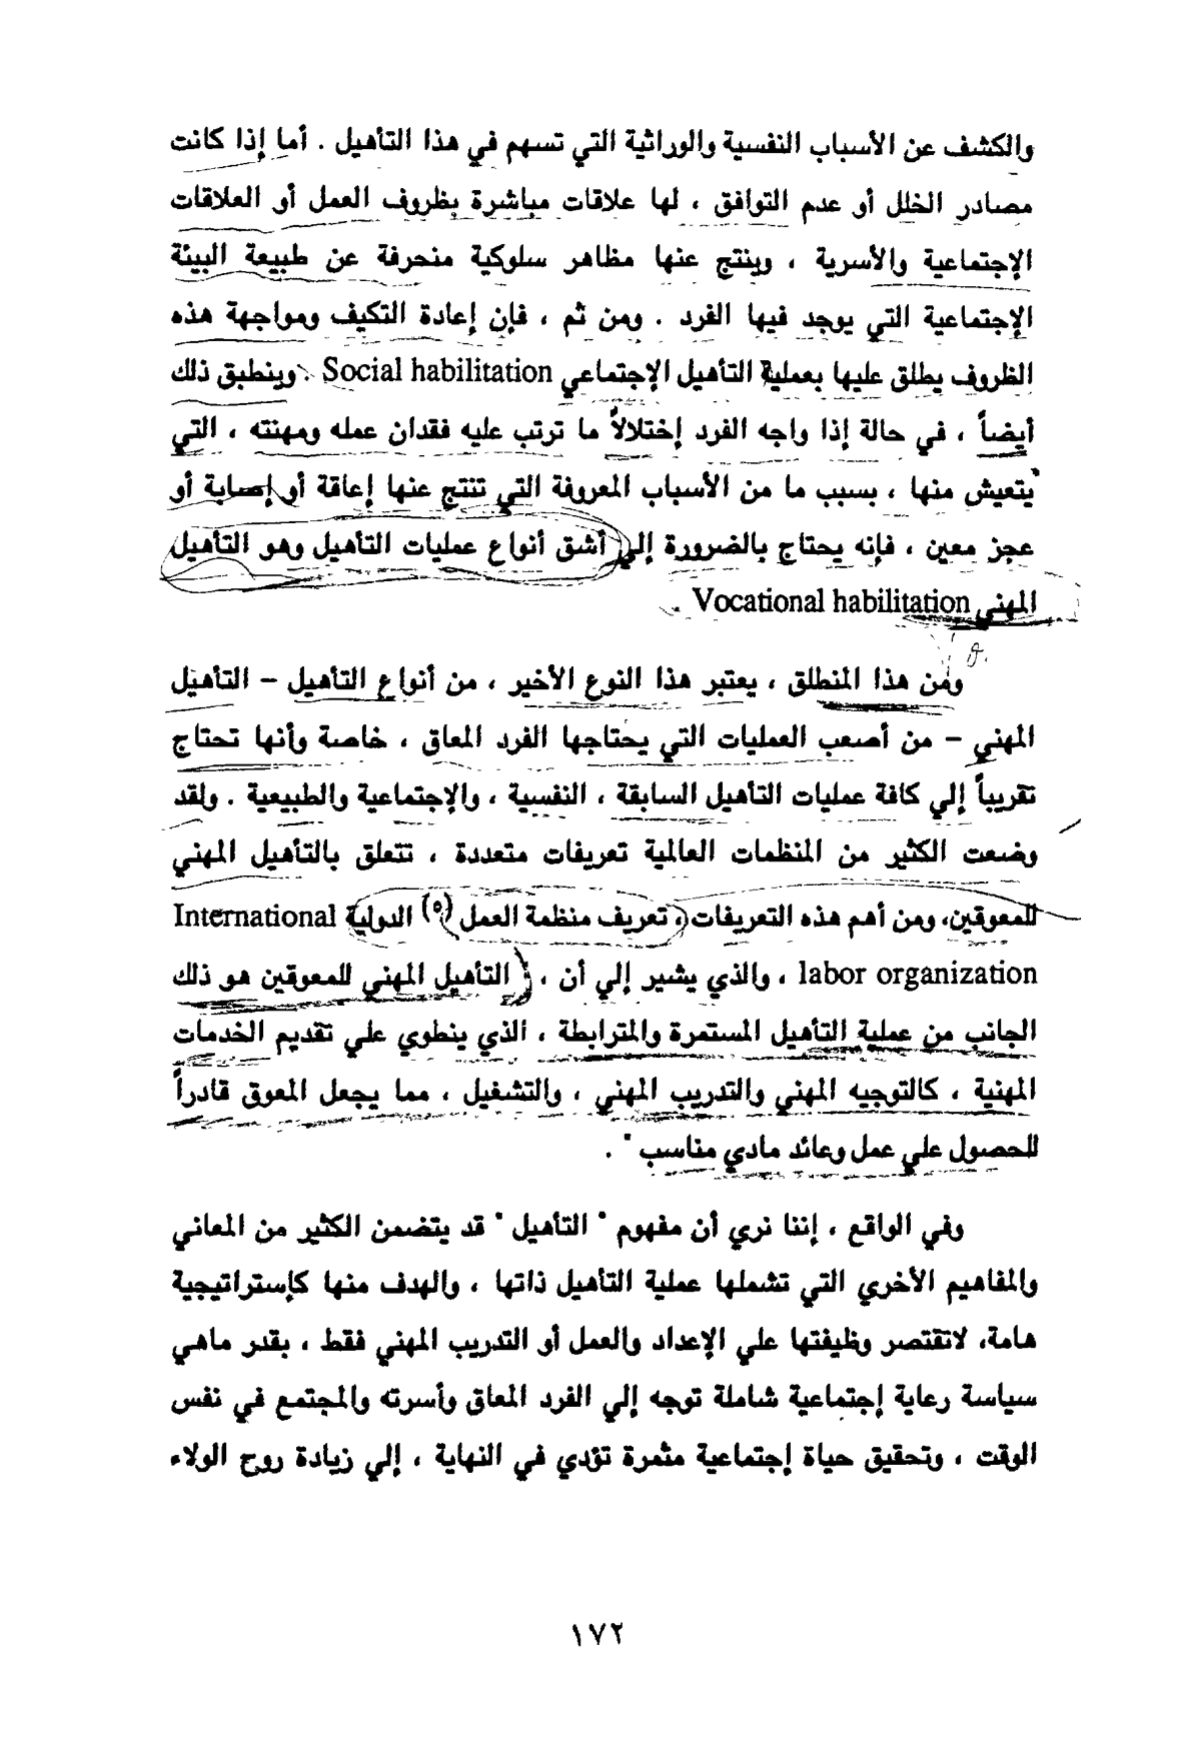 والكشف عن الأسباب النفسية والوراثية التي تسهم في هذا التأهيل . أما إذا كانت
مصادر الخلل أو عدم التوافق ، لها علاقات مباشرة بظروف العمل أو العلاقات
الإجتماعية والأسرية ، وينتج عنها مظاهر سلوكية منحرفة عن طبيعة البيئة
الإجتماعية التي يوجد فيها الفرد . ومن ثم ، فإن إعادة التكيف ومواجهة هذه
الظروف يطلق عليها بعملية التأهيل الإجتماعي Social habilitation . وينطبق ذلك
أيضاً ، في حالة إذا واجه الفرد إختلالاً ما ترتب عليه فقدان عمله ومهنته ، التي
يتعيش منها ، بسبب ما من الأسباب المعروفة التي تنتج عنها إعاقة أو إصابة أو
عجز معين ، فإنه يحتاج بالضرورة إلي أشق أنواع عمليات التأهيل وهو التأهيل
المهني Vocational habilitation .
ومن هذا المنطلق ، يعتبر هذا النوع الأخير ، من أنواع التأهيل – التأهيل
المهني – من أصعب العمليات التي يحتاجها الفرد المعاق ، خاصة وأنها تحتاج
تقريباً إلي كافة عمليات التأهيل السابقة ، النفسية ، والإجتماعية والطبيعية . ولقد
وضعت الكثير من المنظمات العالمية تعريفات متعددة ، تتعلق بالتأهيل المهني
للمعوقين، ومن أهم هذه التعريفات ، تعريف منظمة العمل (٥) الدولية International
labor organization ، والذي يشير إلي أن ، " التأهيل المهني للمعوقين هو ذلك
الجانب من عملية التأهيل المستمرة والمترابطة ، الذي ينطوي علي تقديم الخدمات
المهنية ، كالتوجيه المهني والتدريب المهني ، والتشغيل ، مما يجعل المعوق قادراً
للحصول علي عمل وعائد مادي مناسب " .
وفي الواقع ، إننا نري أن مفهوم " التأهيل " قد يتضمن الكثير من المعاني
والمفاهيم الأخري التي تشملها عملية التأهيل ذاتها ، والهدف منها كإستراتيجية
هامة، لاتقتصر وظيفتها علي الإعداد والعمل أو التدريب المهني فقط ، بقدر ماهي
سياسة رعاية إجتماعية شاملة توجه إلي الفرد المعاق وأسرته والمجتمع في نفس
الوقت ، وتحقيق حياة إجتماعية مثمرة تؤدي في النهاية ، إلي زيادة روح الولاء
١٧٢